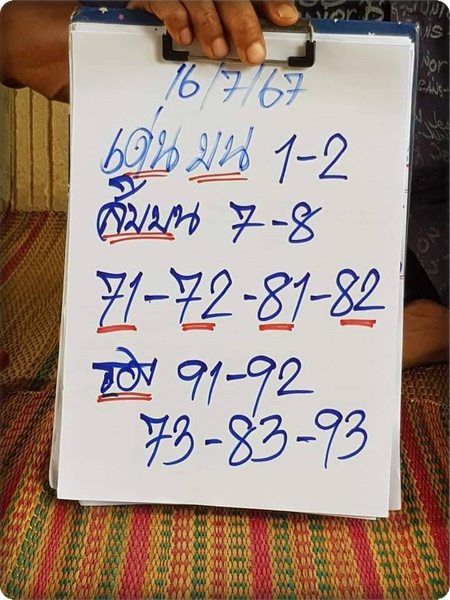 16/7/67
เด่น บน 1-2
สิ้บบน 7-8
71-72-81-82
รอง 91-92
73-83-93